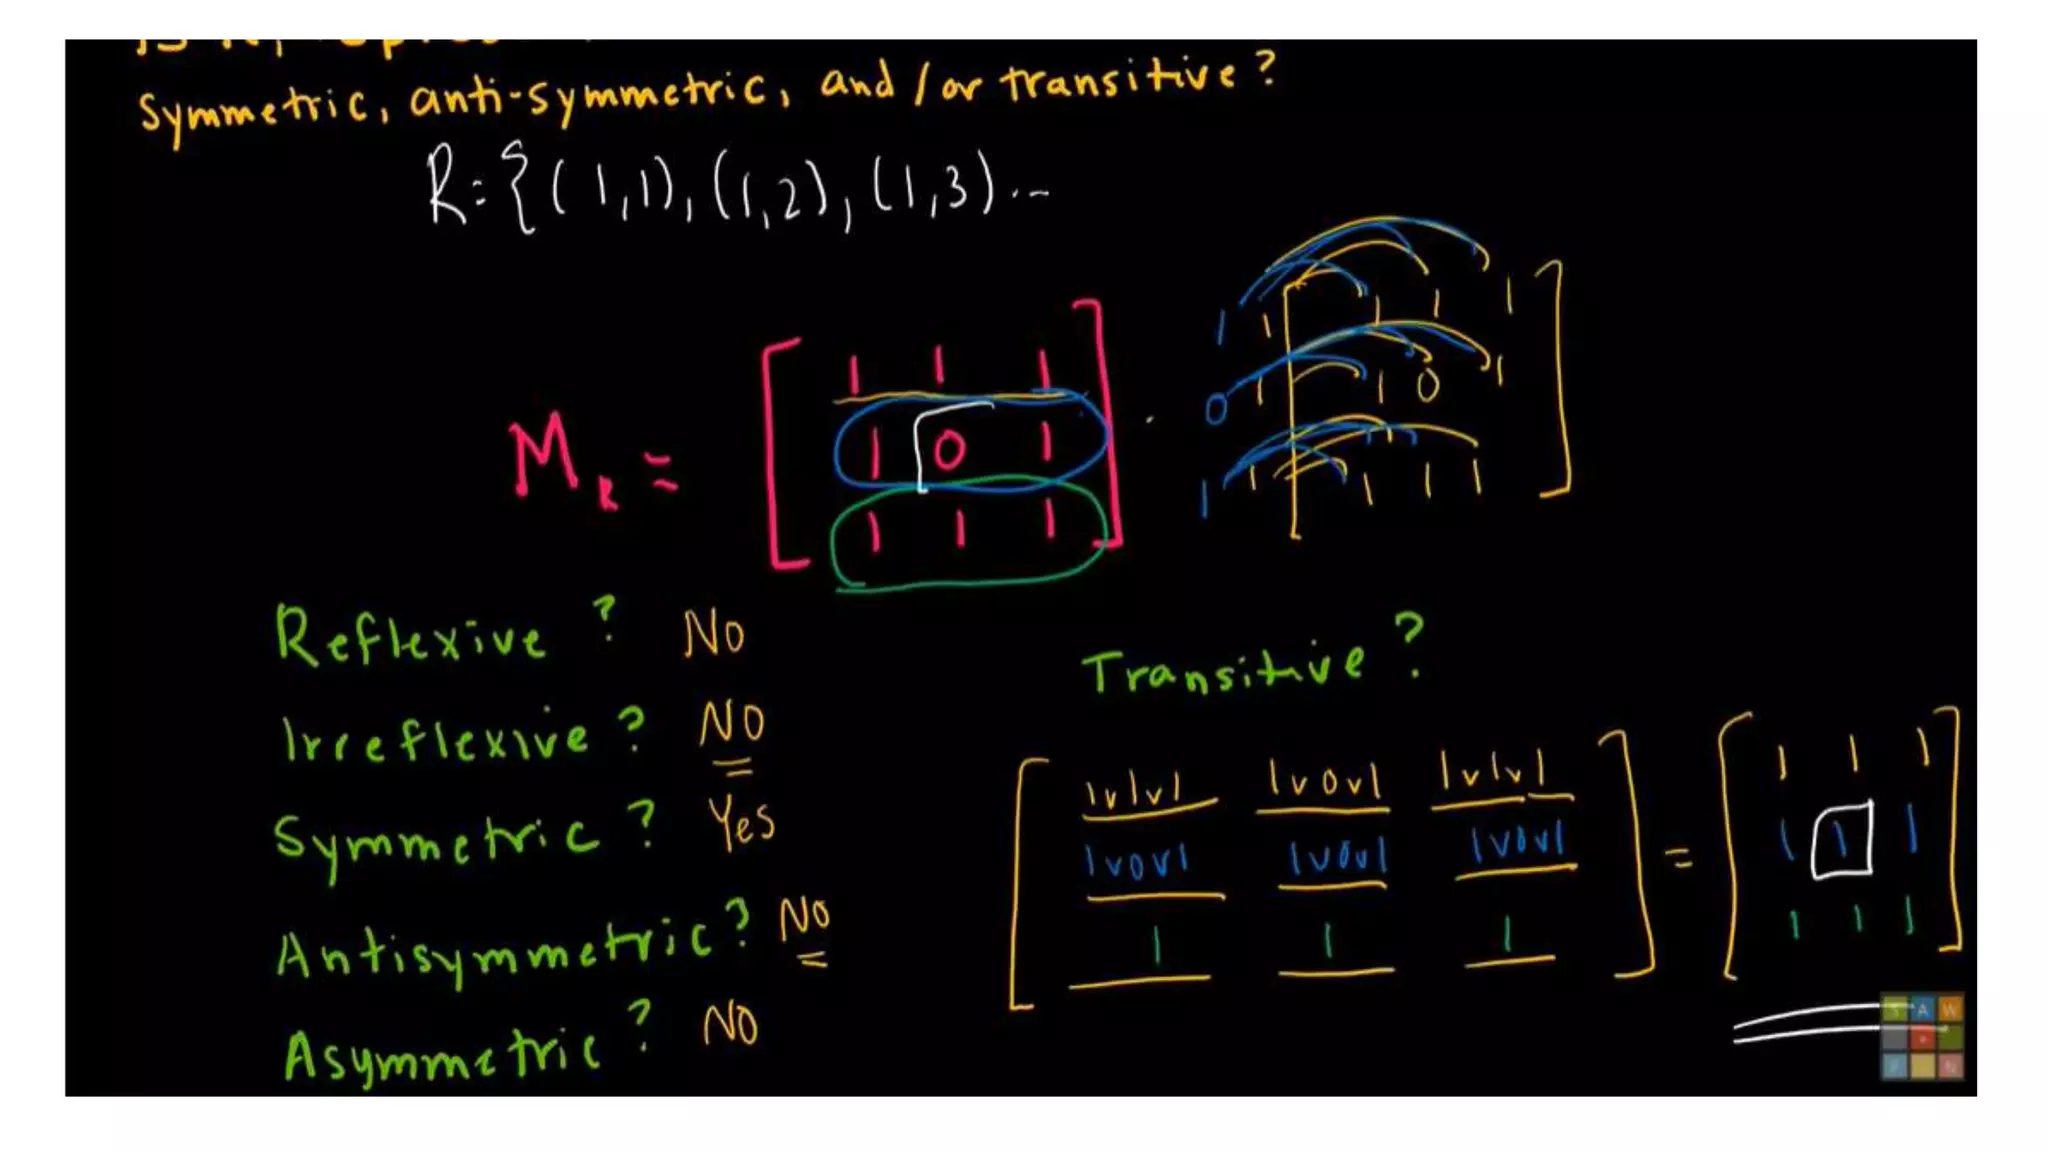 Symmetric, anti-symmetric, and/or transitive?
R={(1,1),(1,2),(1,3)...
M_R = [ 1 1 1 ] . 1 1 [ 1 1 1 ]
1 0 1 0 1 1 0 1
1 1 1 1 1 1 1 1
Reflexive? No
Irreflexive? No
Symmetric? Yes
Antisymmetric? No
Asymmetric? No
Transitive?
[ 1v1v1 1v0v1 1v1v1 ] = [ 1 1 1 ]
1v0v1 1v0v1 1v0v1 1 1 1
1 1 1 1 1 1